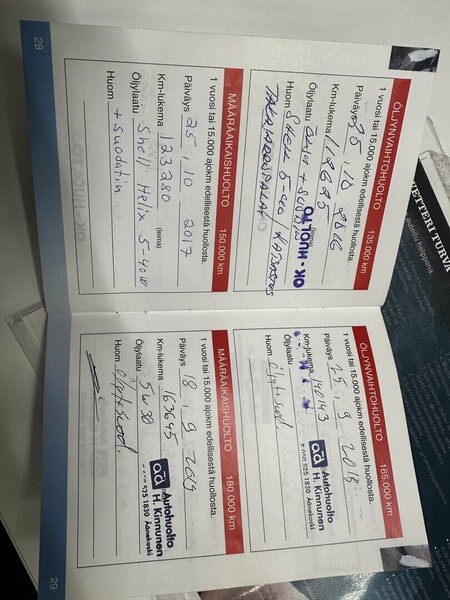 ÖLJYNVAIHTOHUOLTO 135.000 km
1 vuosi tai 15.000 ajokm edellisestä huollosta.
Päiväys 25. 10 2016
Km-lukema 119625
(leima)
Öljylaatu Öljy + suodatin
OK-HUOLTO
Huom Shell 5-40
MÄÄRÄAIKAISHUOLTO 150.000 km
1 vuosi tai 15.000 ajokm edellisestä huollosta.
Päiväys 25. 10 2017
Km-lukema 123280
(leima)
Öljylaatu Shell Helix 5-40W
Huom + suodatin
28
ÖLJYNVAIHTOHUOLTO 165.000 km
1 vuosi tai 15.000 ajokm edellisestä huollosta.
Päiväys 25. 9 2018
Km-lukema 140143
Öljylaatu
Huom öljy+suod.
ad Autohuolto
H. Kinnunen
525 1830 Äänekoski
MÄÄRÄAIKAISHUOLTO 180.000 km
1 vuosi tai 15.000 ajokm edellisestä huollosta.
Päiväys 18. 9 2019
Km-lukema 163645
Öljylaatu 5w30
Huom öljy+suod.
ad Autohuolto
H. Kinnunen
525 1830 Äänekoski
29
PETTERI TURVA
autoilu helppona.